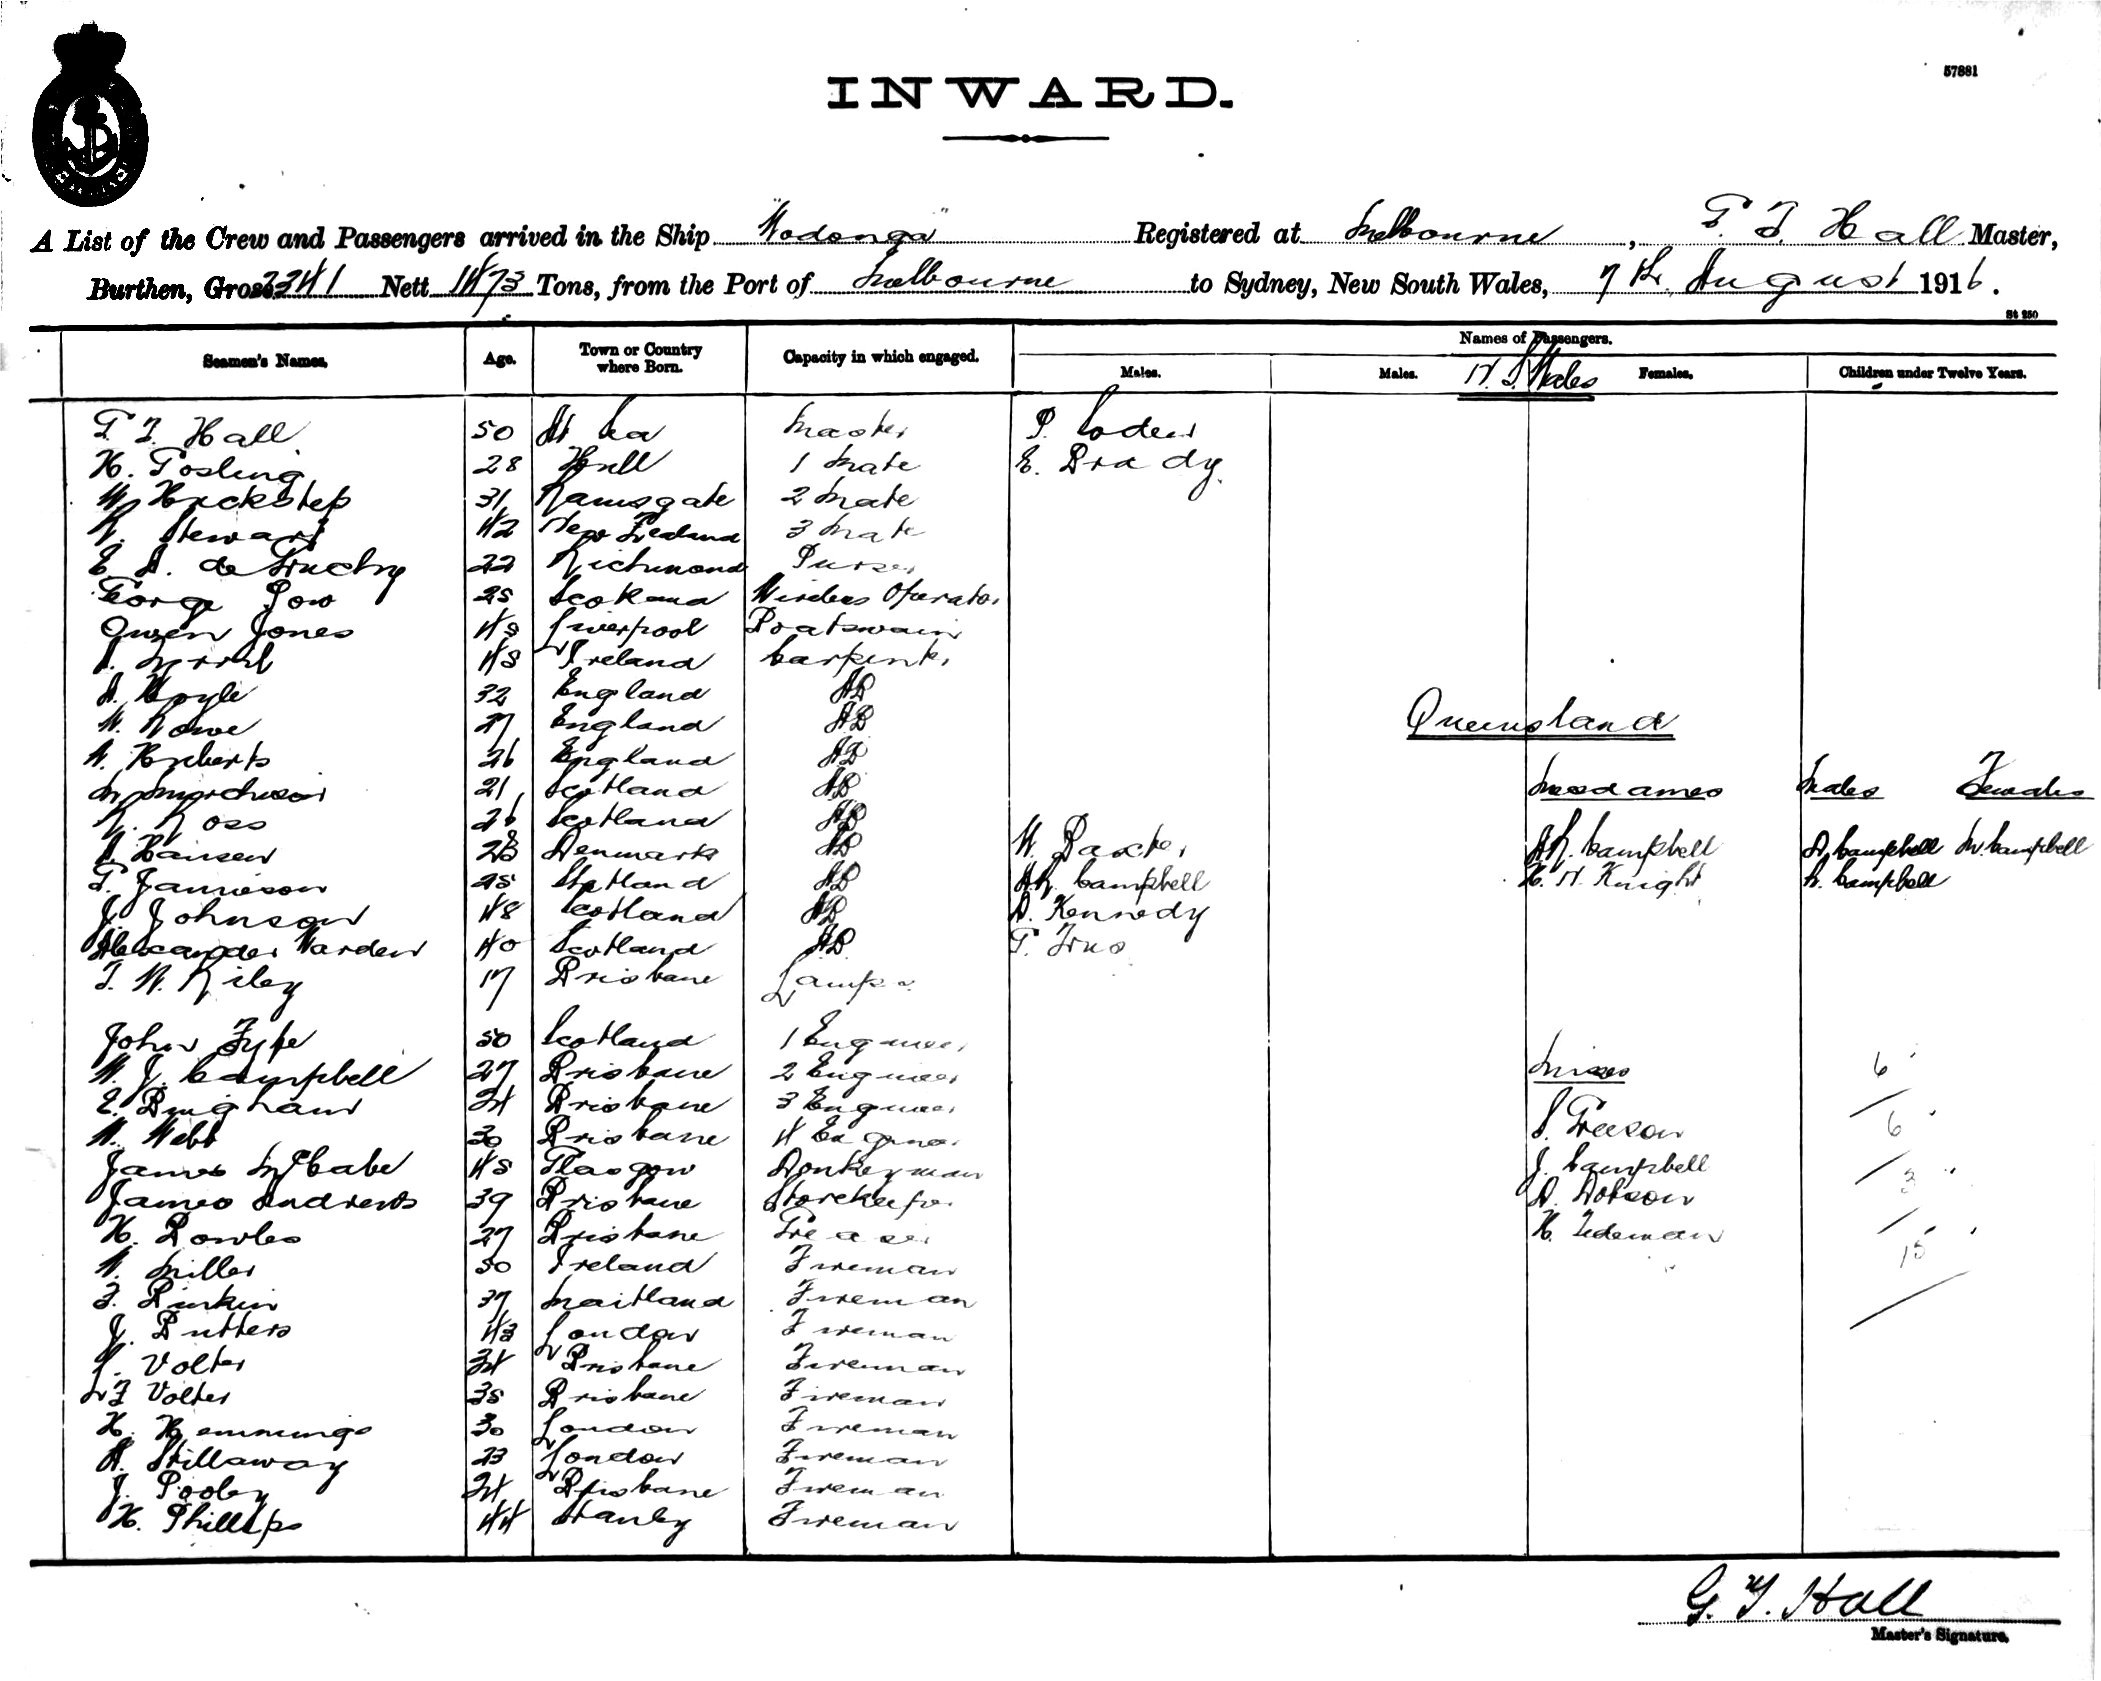 57881
INWARD.
A List of the Crew and Passengers arrived in the Ship "Wodonga" Registered at Melbourne, G. F. Hall Master,
Burthen, Gross 2341 Nett 1473 Tons, from the Port of Melbourne to Sydney, New South Wales, 7th August 1916.
St 250
Seamen's Names. Age. Town or Country where Born. Capacity in which engaged. Names of Passengers.
Males. Males. N. S. Wales Females. Children under Twelve Years.
G. F. Hall 50 At Sea Master P. Loden
H. Gosling 28 Hull 1 Mate E. Brady
W. Huckstep 31 Ramsgate 2 Mate
R. Stewart 42 New Zealand 3 Mate
E A. de Gruchy 22 Richmond Purser
George Gow 25 Scotland Wireless Operator
Owen Jones 49 Liverpool Boatswain
48 Ireland Carpenter
A. Hoyle 32 England AB
W. Rowe 27 England AB
Queensland
A. Roberts 26 England AB
M. Murchison 21 Scotland AB
Mesdames Males Females
R. Ross 26 Scotland AB
A. Hansen 28 Denmark AB W. Baxter A.R. Campbell A. Campbell M. Campbell
G. Jamieson 25 Scotland AB A.R. Campbell H. N. Knight R. Campbell
J. Johnson 48 Scotland AB D. Kennedy
Alexander Warden 40 Scotland AB G.
T. W. Riley 17 Brisbane Lamps
John Fyfe 50 Scotland 1 Engineer
W. J. Campbell 27 Brisbane 2 Engineer Misses 6
E. Bingham 24 Brisbane 3 Engineer
W. Webb 30 Brisbane 4 Engineer S. Gleeson 6
James McCabe 45 Glasgow Donkeyman J. Campbell 3
James Andrews 39 Brisbane Storekeeper D. Dobson
H. Bowles 27 Brisbane Greaser H. Tedeman 15
W. Miller 50 Ireland Fireman
F. Binkin 37 Maitland Fireman
J. Butters 43 London Fireman
L. Volter 34 Brisbane Fireman
F Volter 35 Brisbane Fireman
H. Hemmings 30 London Fireman
A. Stillaway 23 London Fireman
J. Pooley 24 Brisbane Fireman
H. Phillips 44 Stanley Fireman
G. F. Hall
Master's Signature.